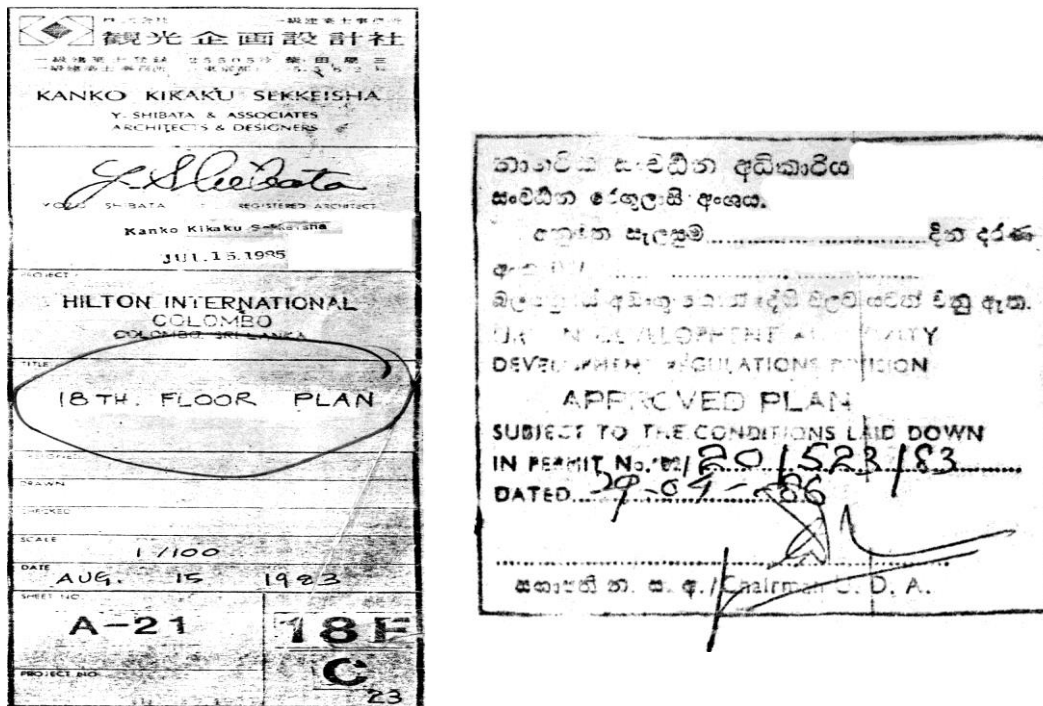 株式会社 一級建築士事務所
観光企画設計社
一級建築士登録 25505号 柴田陽三
KANKO KIKAKU SEKKEISHA
Y. SHIBATA & ASSOCIATES
ARCHITECTS & DESIGNERS
Y. Shibata
YOZO SHIBATA REGISTERED ARCHITECT
Kanko Kikaku Sekkeisha
JUL.15.1985
PROJECT
HILTON INTERNATIONAL
COLOMBO
COLOMBO SRI LANKA
TITLE
18TH. FLOOR PLAN
DESIGNED
DRAWN
CHECKED
SCALE
1/100
DATE
AUG. 15 1983
SHEET NO.
A-21
18F
C
23
PROJECT NO.
නාගරික සංවර්ධන අධිකාරිය
සංවර්ධන රෙගුලාසි අංශය.
අනුමත සැලසුම.....................දින දරණ
අංක
ඇත.
URBAN DEVELOPMENT AUTHORITY
DEVELOPMENT REGULATIONS DIVISION
APPROVED PLAN
SUBJECT TO THE CONDITIONS LAID DOWN
IN PERMIT No. 82/ 20/523/83
DATED 29-04-86
සභාපති න. ස. අ. / Chairman U. D. A.